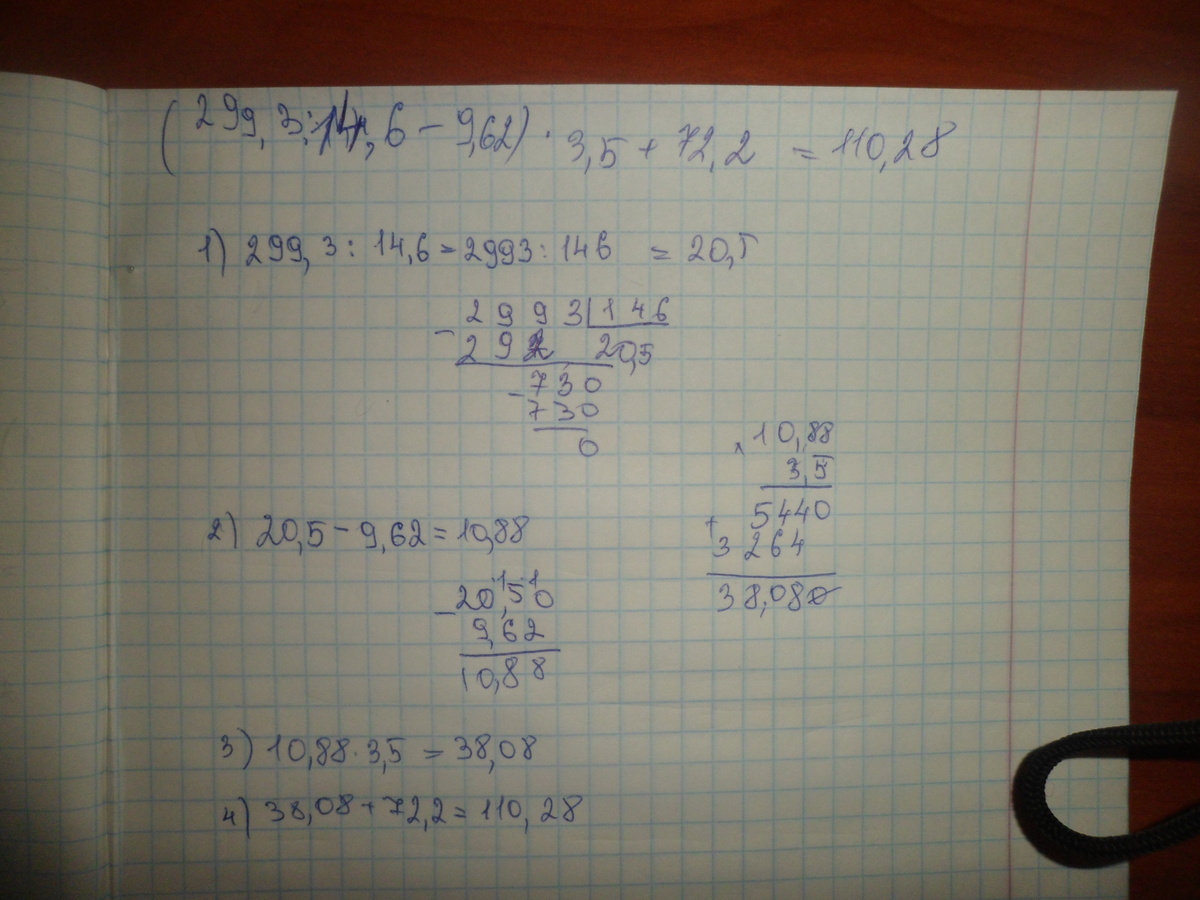 (299,3:14,6 - 9,62) · 3,5 + 72,2 = 110,28
1) 299,3 : 14,6 = 2993 : 146 = 20,5
- 2993 | 146
292 20,5
- 730
730
0
2) 20,5 - 9,62 = 10,88
- 20,50
9,62
10,88
x 10,88
3,5
+ 5440
3264
38,080
3) 10,88 · 3,5 = 38,08
4) 38,08 + 72,2 = 110,28